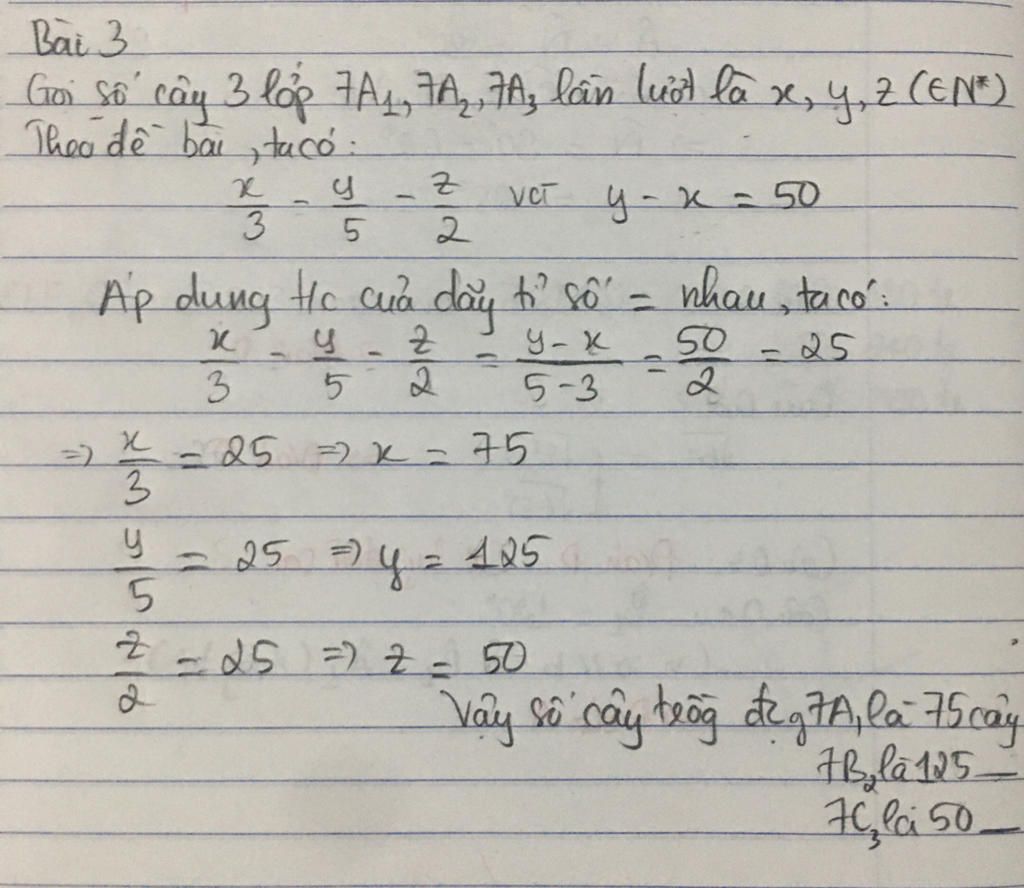 Bài 3
Gọi số cây 3 lớp 7A1, 7A2, 7A3 lần lượt là x, y, z (∈N*)
Theo đề bài, ta có:
x/3 = y/5 = z/2 và y - x = 50
Áp dụng t/c của dãy tỉ số = nhau, ta có:
x/3 = y/5 = z/2 = (y - x)/(5 - 3) = 50/2 = 25
⇒ x/3 = 25 ⇒ x = 75
y/5 = 25 ⇒ y = 125
z/2 = 25 ⇒ z = 50
Vậy số cây trồg đc 7A1 là 75 cây
7B2 là 125 —
7C3 là 50 —